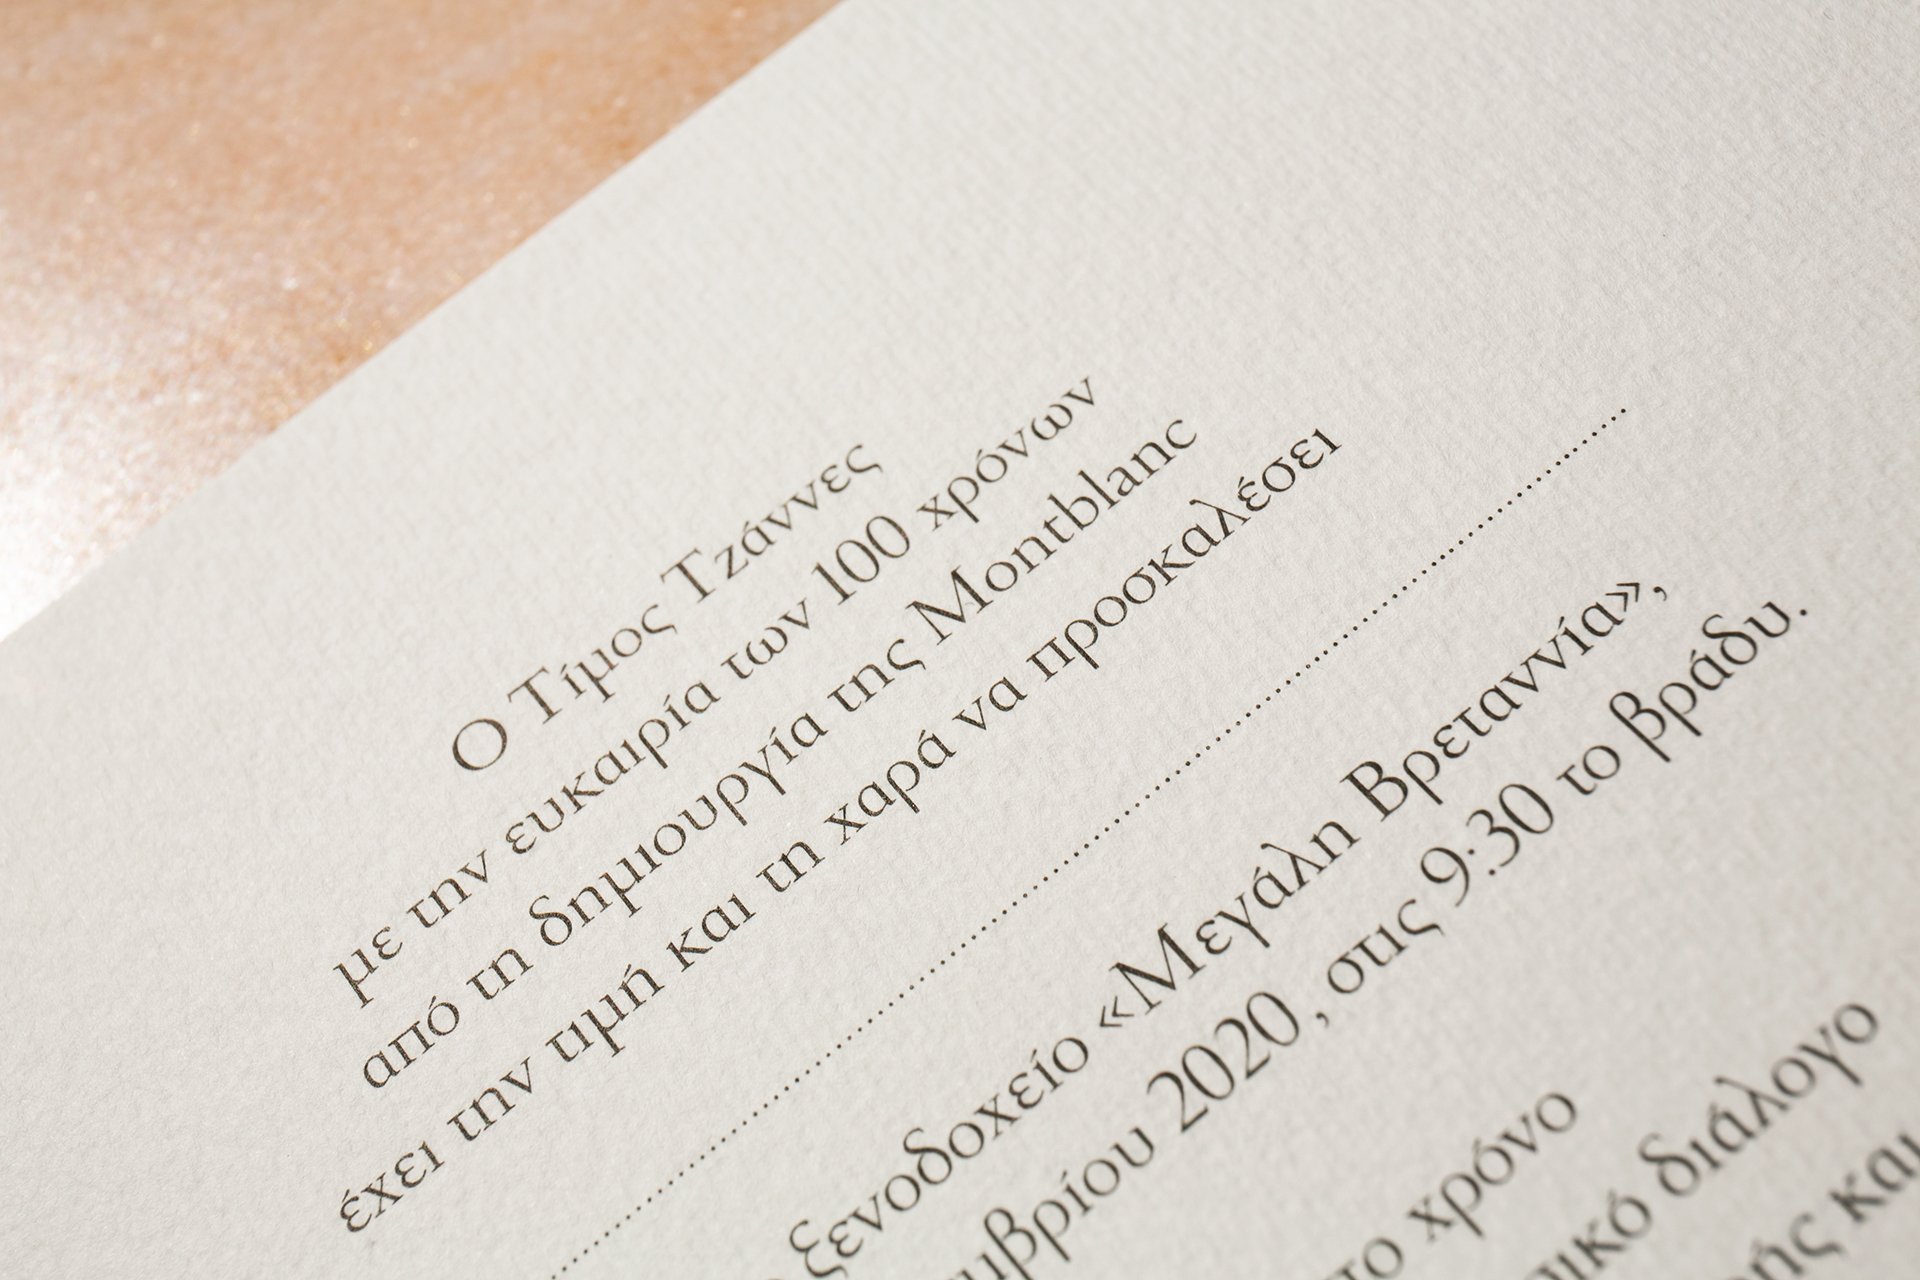 Ο Τίμος Τζάννες
με την ευκαιρία των 100 χρόνων
από τη δημιουργία της Montblanc
έχει την τιμή και τη χαρά να προσκαλέσει
ξενοδοχείο «Μεγάλη Βρεταννία»,
2020, στις 9:30 το βράδυ.
χρόνο
διάλογο
και